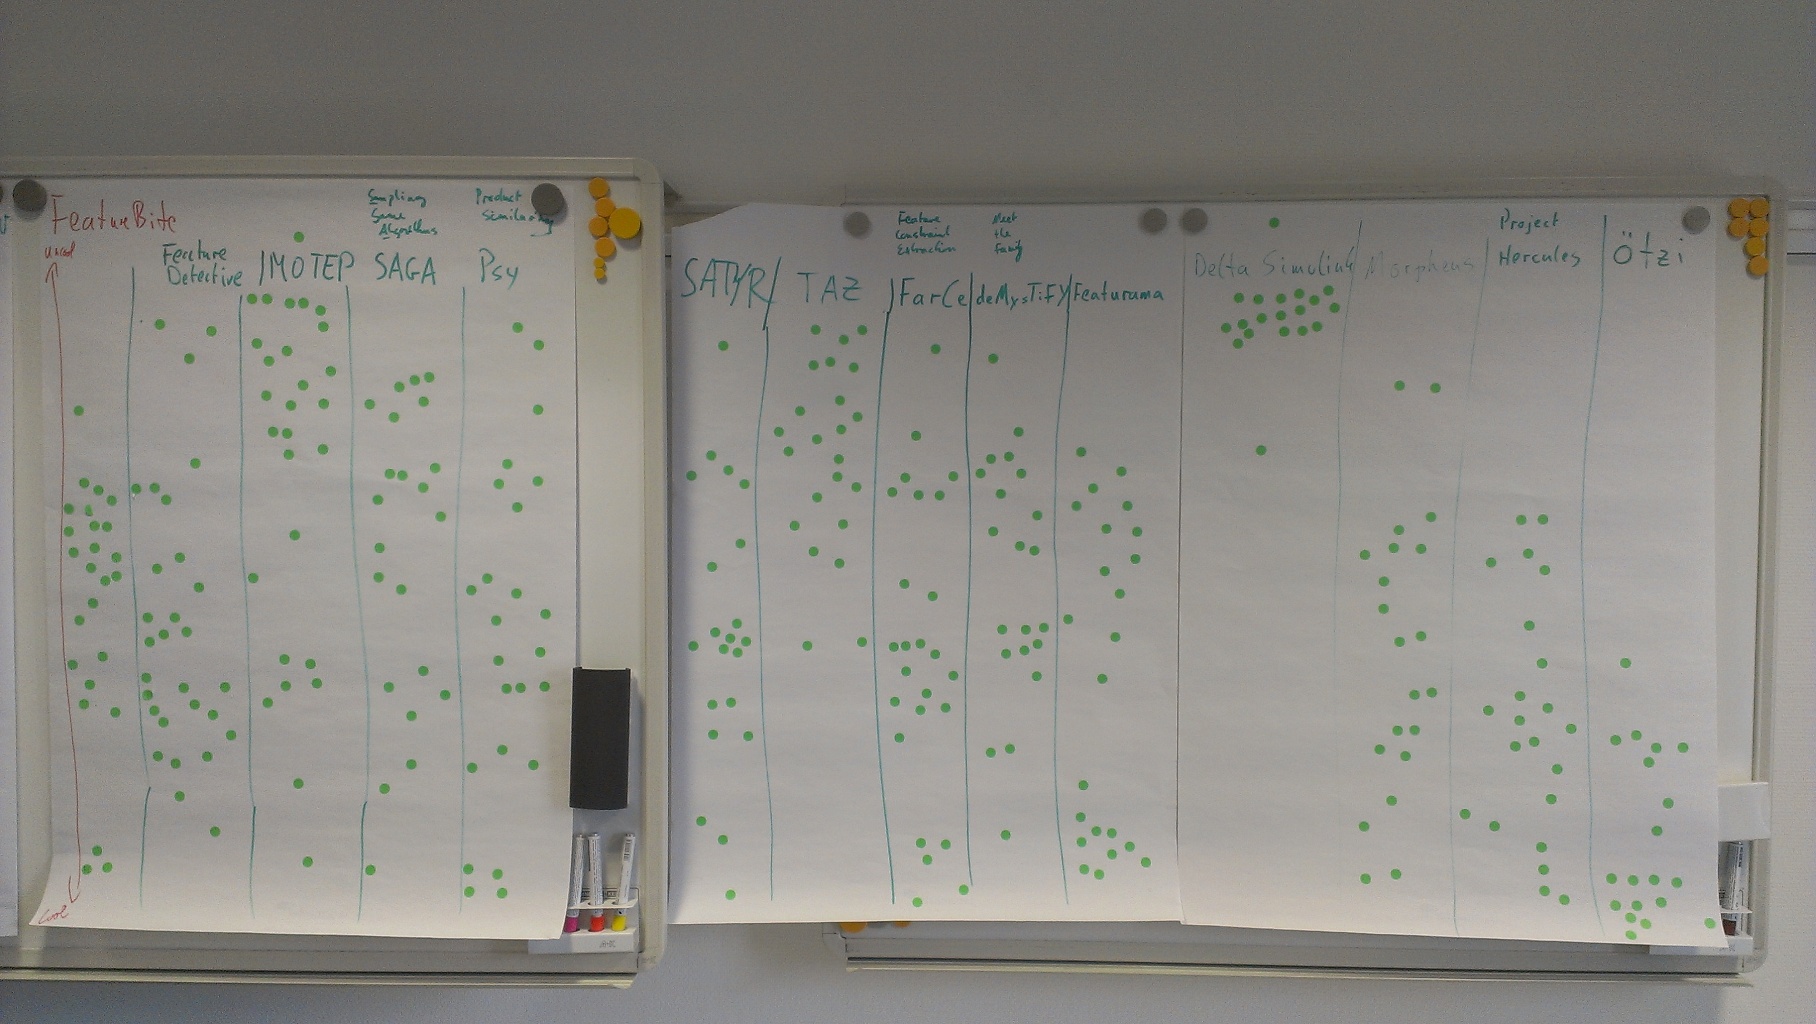 FeatureBite
uncool
cool
Feature
Detective
IMOTEP
Sampling
Game
Algorithms
SAGA
Product
Similarity
Psy
SATYR
TAZ
Feature
Constraint
Extraction
FarCe
Meet
the
family
deMysTiFY
Featurama
Delta Simulink
Morpheus
Project
Hercules
Ötzi